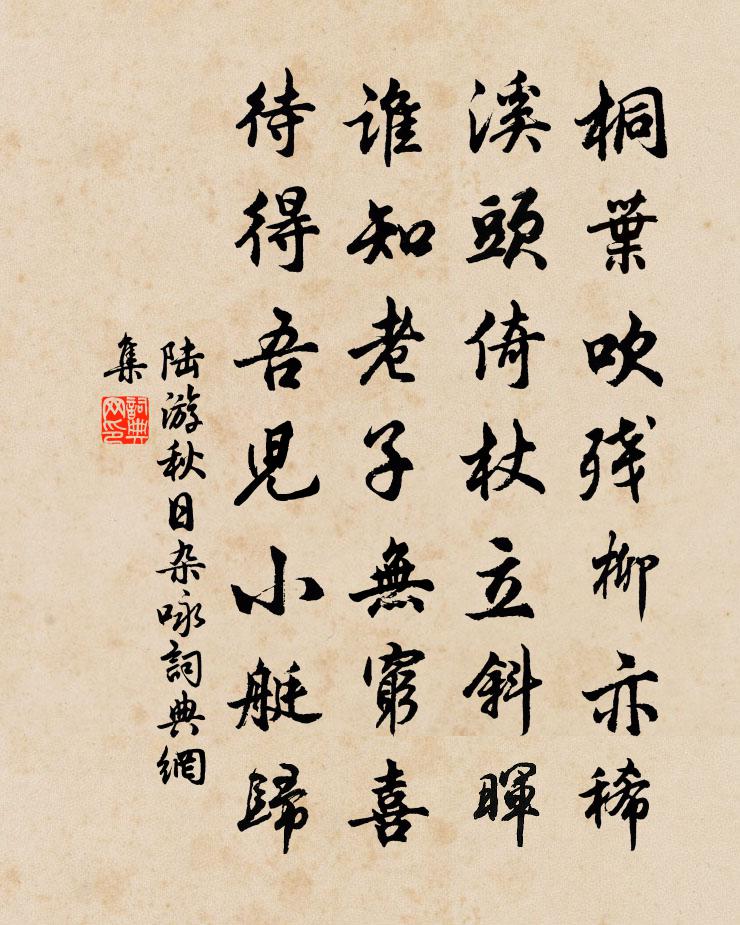 桐葉吹残柳亦稀
溪頭倚杖立斜暉
誰知老子無窮喜
待得吾児小艇歸
陆游秋日杂咏詞典網
集
詞典
网印